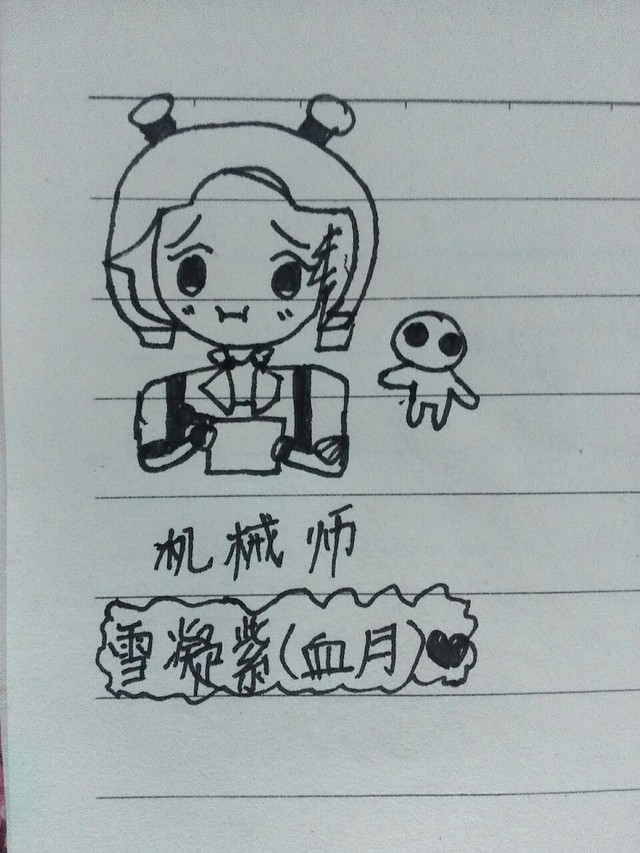 机械师
雪凝紫(血月)♥